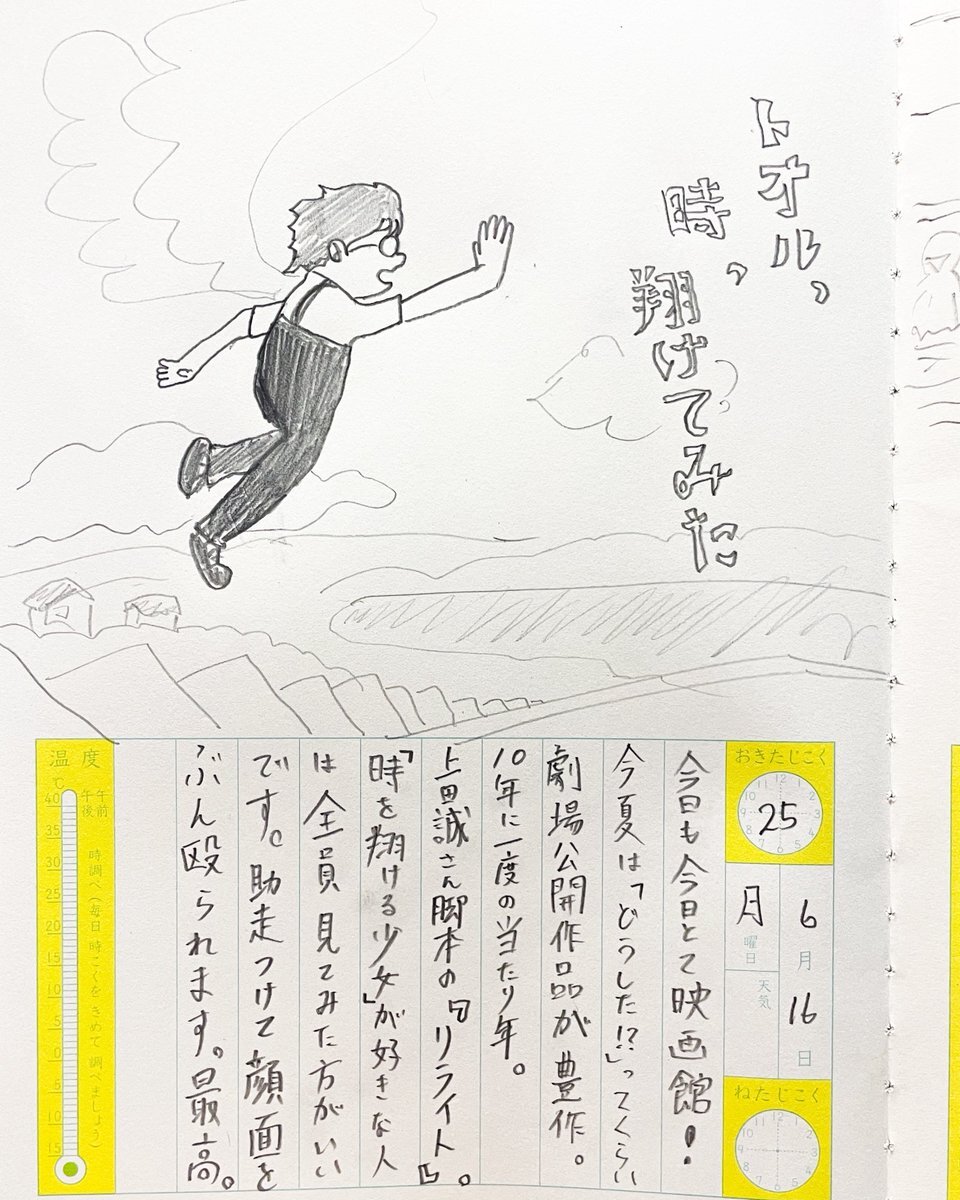 トオル、
時、
翔けてみた
おきたじこく
25
6月16日
月曜日
天気
ねたじこく
今日も今日とて映画館!
今夏は「どうした!?」ってくらい
劇場公開作品が豊作。
10年に一度の当たり年。
上田誠さん脚本の『リライト』。
「時を翔ける少女」が好きな人
は全員見てみた方がいい
です。助走つけて顔面を
ぶん殴られます。最高。
温度
℃
午前
午後
時調べ(毎日 時こくを きめて 調べましょう)
40
35
30
25
20
15
10
5
0
5
10
15